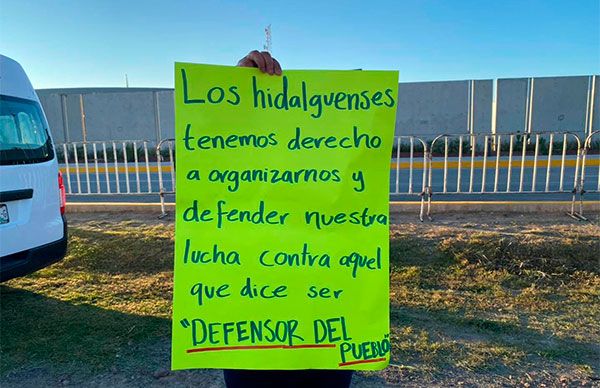 Los hidalguenses
tenemos derecho
a organizarnos y
defender nuestra
lucha contra aquel
que dice ser
"DEFENSOR DEL
PUEBLO"